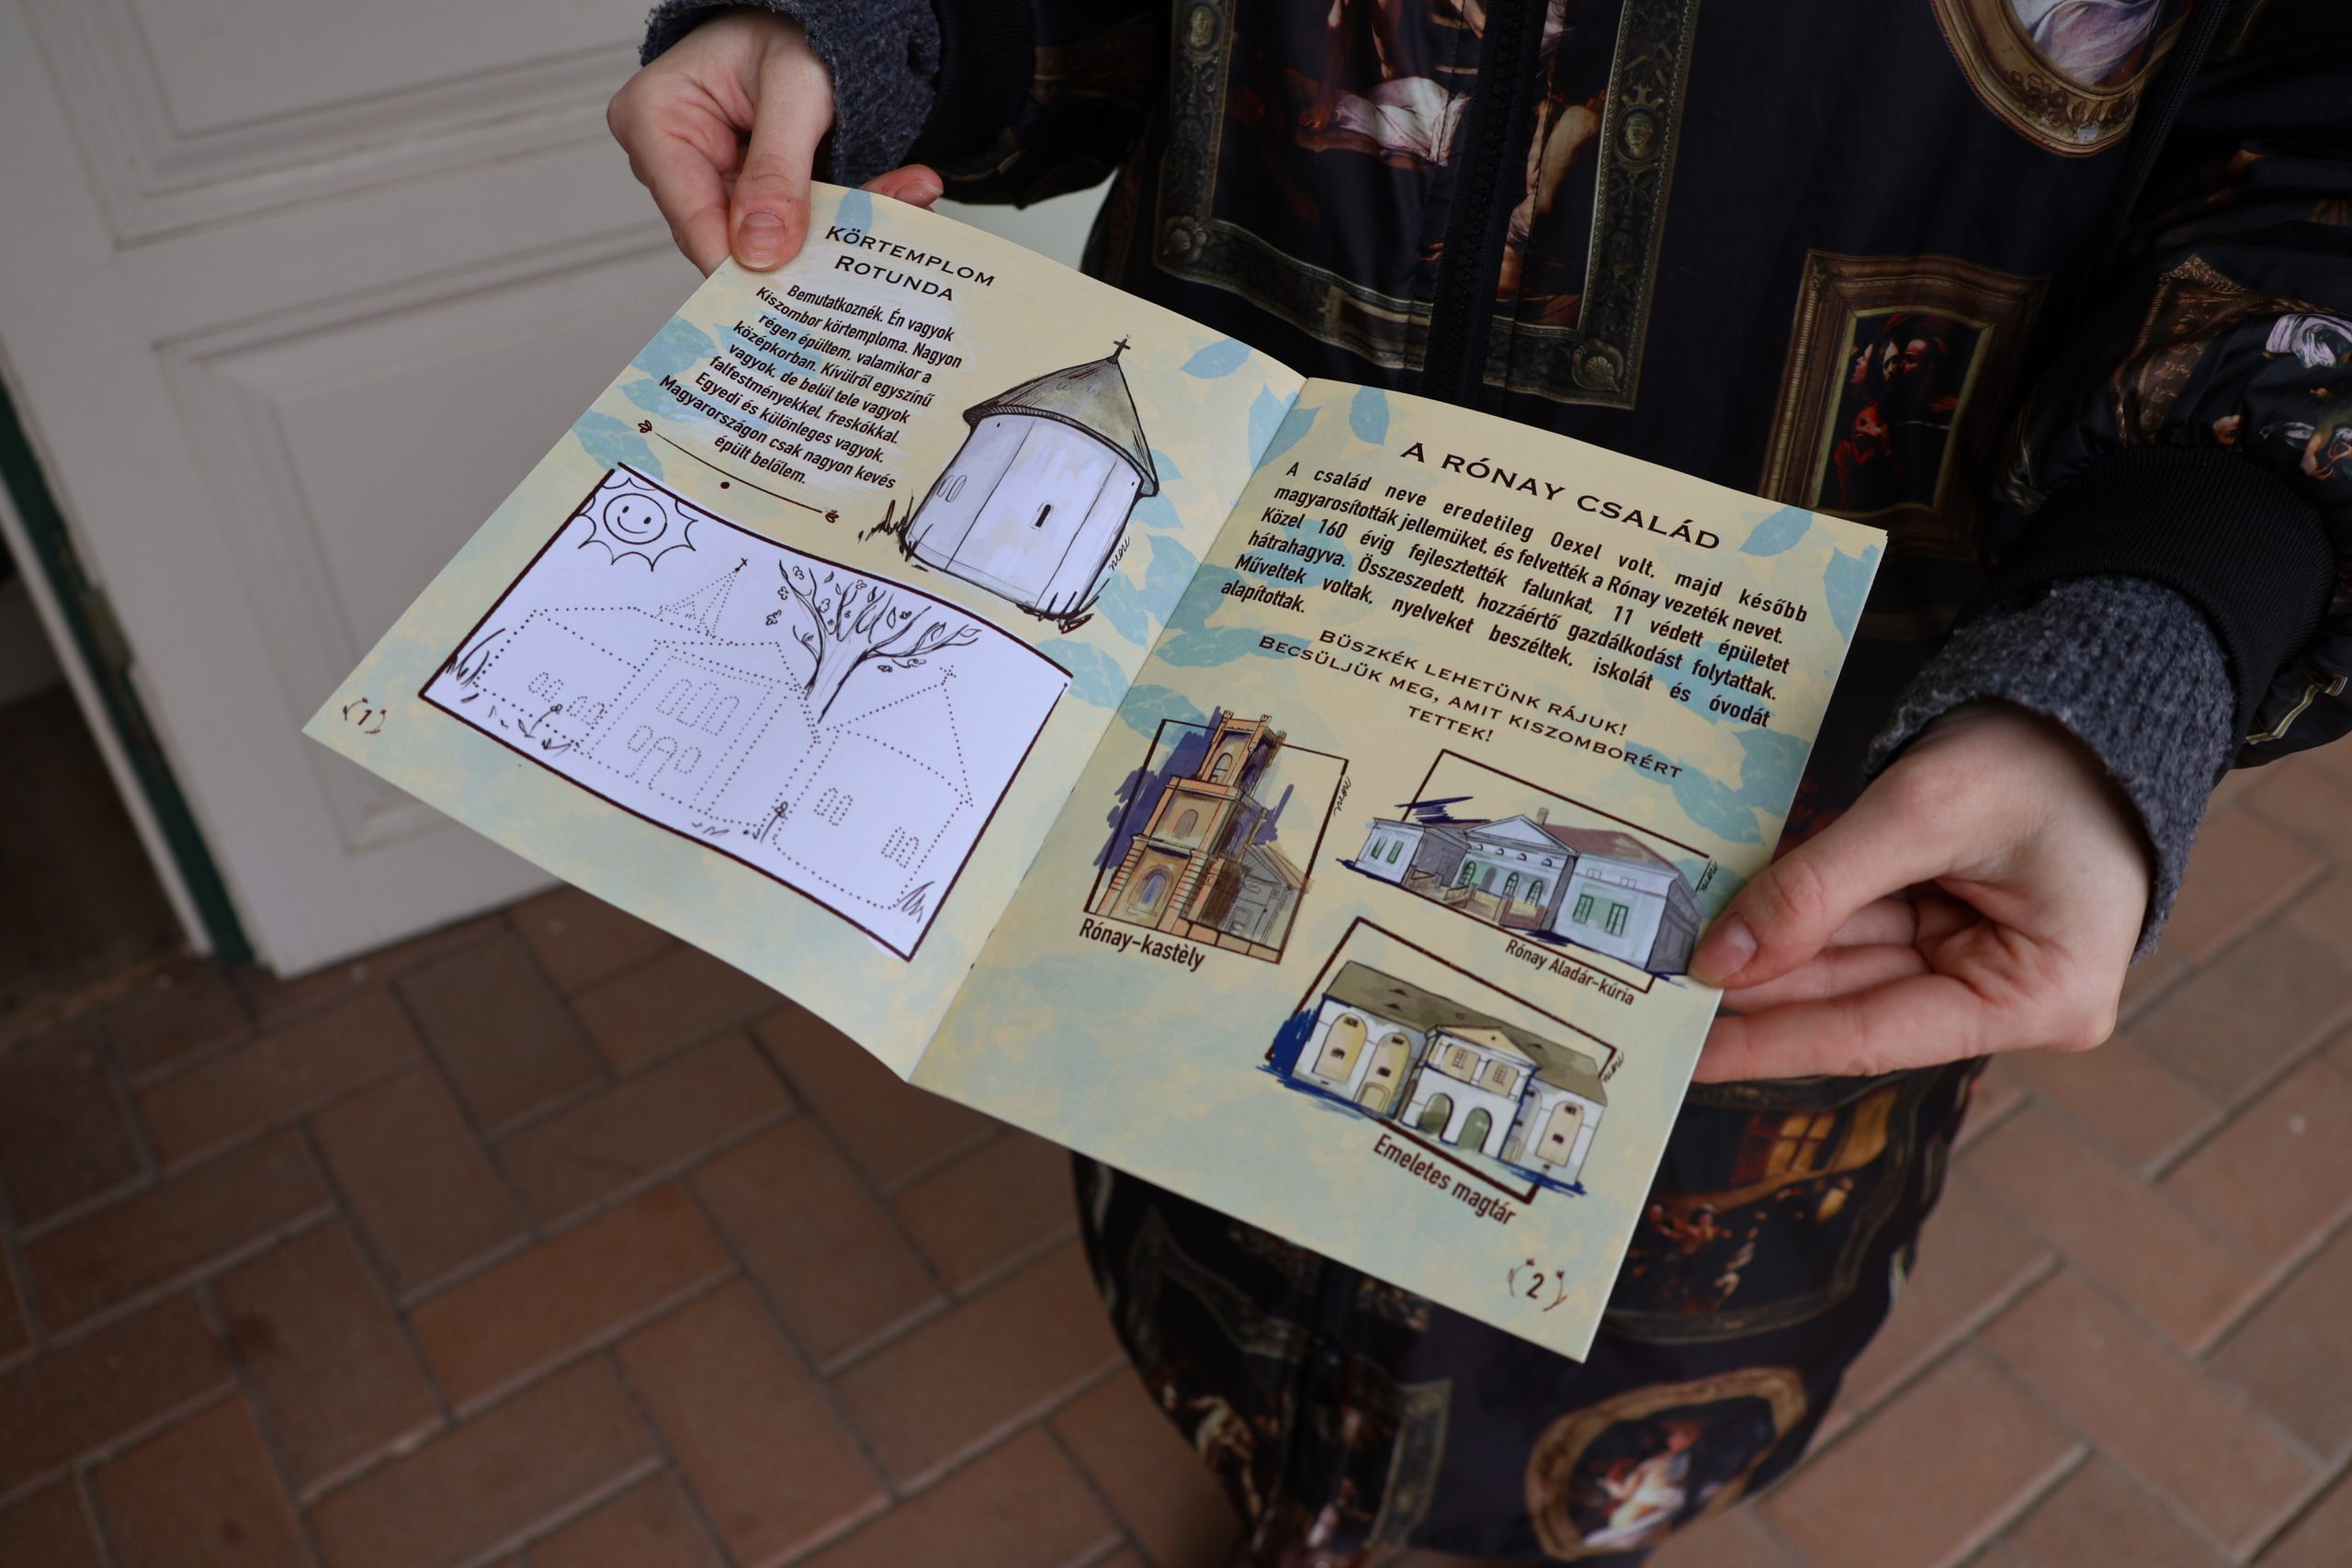 KÖRTEMPLOM
ROTUNDA
Bemutatkoznék. Én vagyok
Kiszombor körtemploma. Nagyon
régen épültem, valamikor a
középkorban. Kívülről egyszínű
vagyok, de belül tele vagyok
falfestményekkel, freskókkal.
Egyedi és különleges vagyok,
Magyarországon csak nagyon kevés
épült belőlem.
noni
1
A RÓNAY CSALÁD
A család neve eredetileg Oexel volt, majd később
magyarosították jellemüket, és felvették a Rónay vezeték nevet.
Közel 160 évig fejlesztették falunkat, 11 védett épületet
hátrahagyva. Összeszedett, hozzáértő gazdálkodást folytattak.
Műveltek voltak, nyelveket beszéltek, iskolát és óvodát
alapítottak.
BÜSZKÉK LEHETÜNK RÁJUK!
BECSÜLJÜK MEG, AMIT KISZOMBORÉRT
TETTEK!
noni
Rónay-kastèly
noni
Rónay Aladár-kúria
noni
Emeletes magtár
2